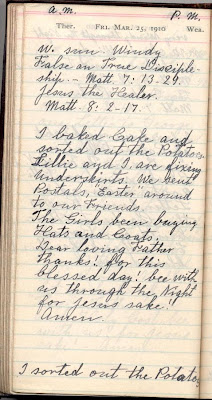 A.M. P.M.
Ther. FRI. MAR. 25, 1910 Wea.
W. sun. Windy
False an True Disciple-
ship. - Matt. 7:13-29.
Jesus the Healer.
Matt. 8:2-17.
I baked Cake and
sorted out the Potatos.
Lillie and I are fixing
Underskirts. We sent
Postals, 'Easter' around
to our Friends.
The Girls been buying
Hats and Coats.
Dear loving Father
thanks! for this
blessed day! bee with
us through the Night
for Jesus sake!
Amen.
I sorted out the Potatos